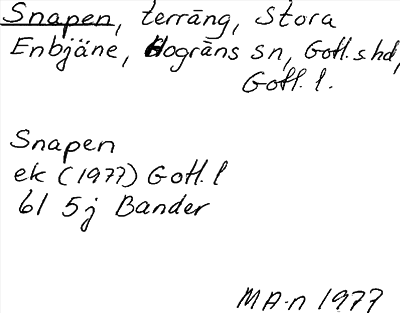 Snapen, terräng, Stora
Enbjäne, Hogräns sn, Gotl. s. hd,
Gotl. l.
Snapen
ek (1977) Gotl. l
6I 5j Bander
MA-n 1977